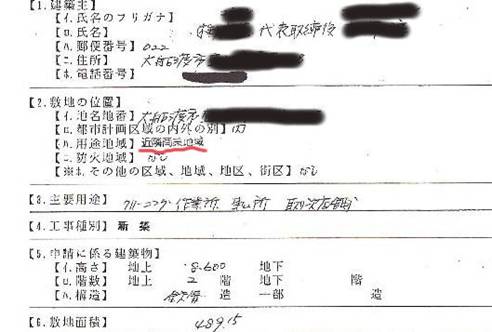 【1.建築主】
【イ.氏名のフリガナ】
【ロ.氏名】 代表取締役
【ハ.郵便番号】 022
【ニ.住所】 大船渡市
【ホ.電話番号】
【2.敷地の位置】
【イ.地名地番】 大船渡市
【ロ.都市計画区域の内外の別】 内
【ハ.用途地域】 近隣商業地域
【ニ.防火地域】 なし
【※ホ.その他の区域、地域、地区、街区】 なし
【3.主要用途】 クリーニング 作業所 取次店舗
【4.工事種別】 新築
【5.申請に係る建築物】
【イ.高さ】 地上 8.600 地下
【ロ.階数】 地上 2 階 地下 階
【ハ.構造】 鉄骨 造 一部 造
【6.敷地面積】 489.15